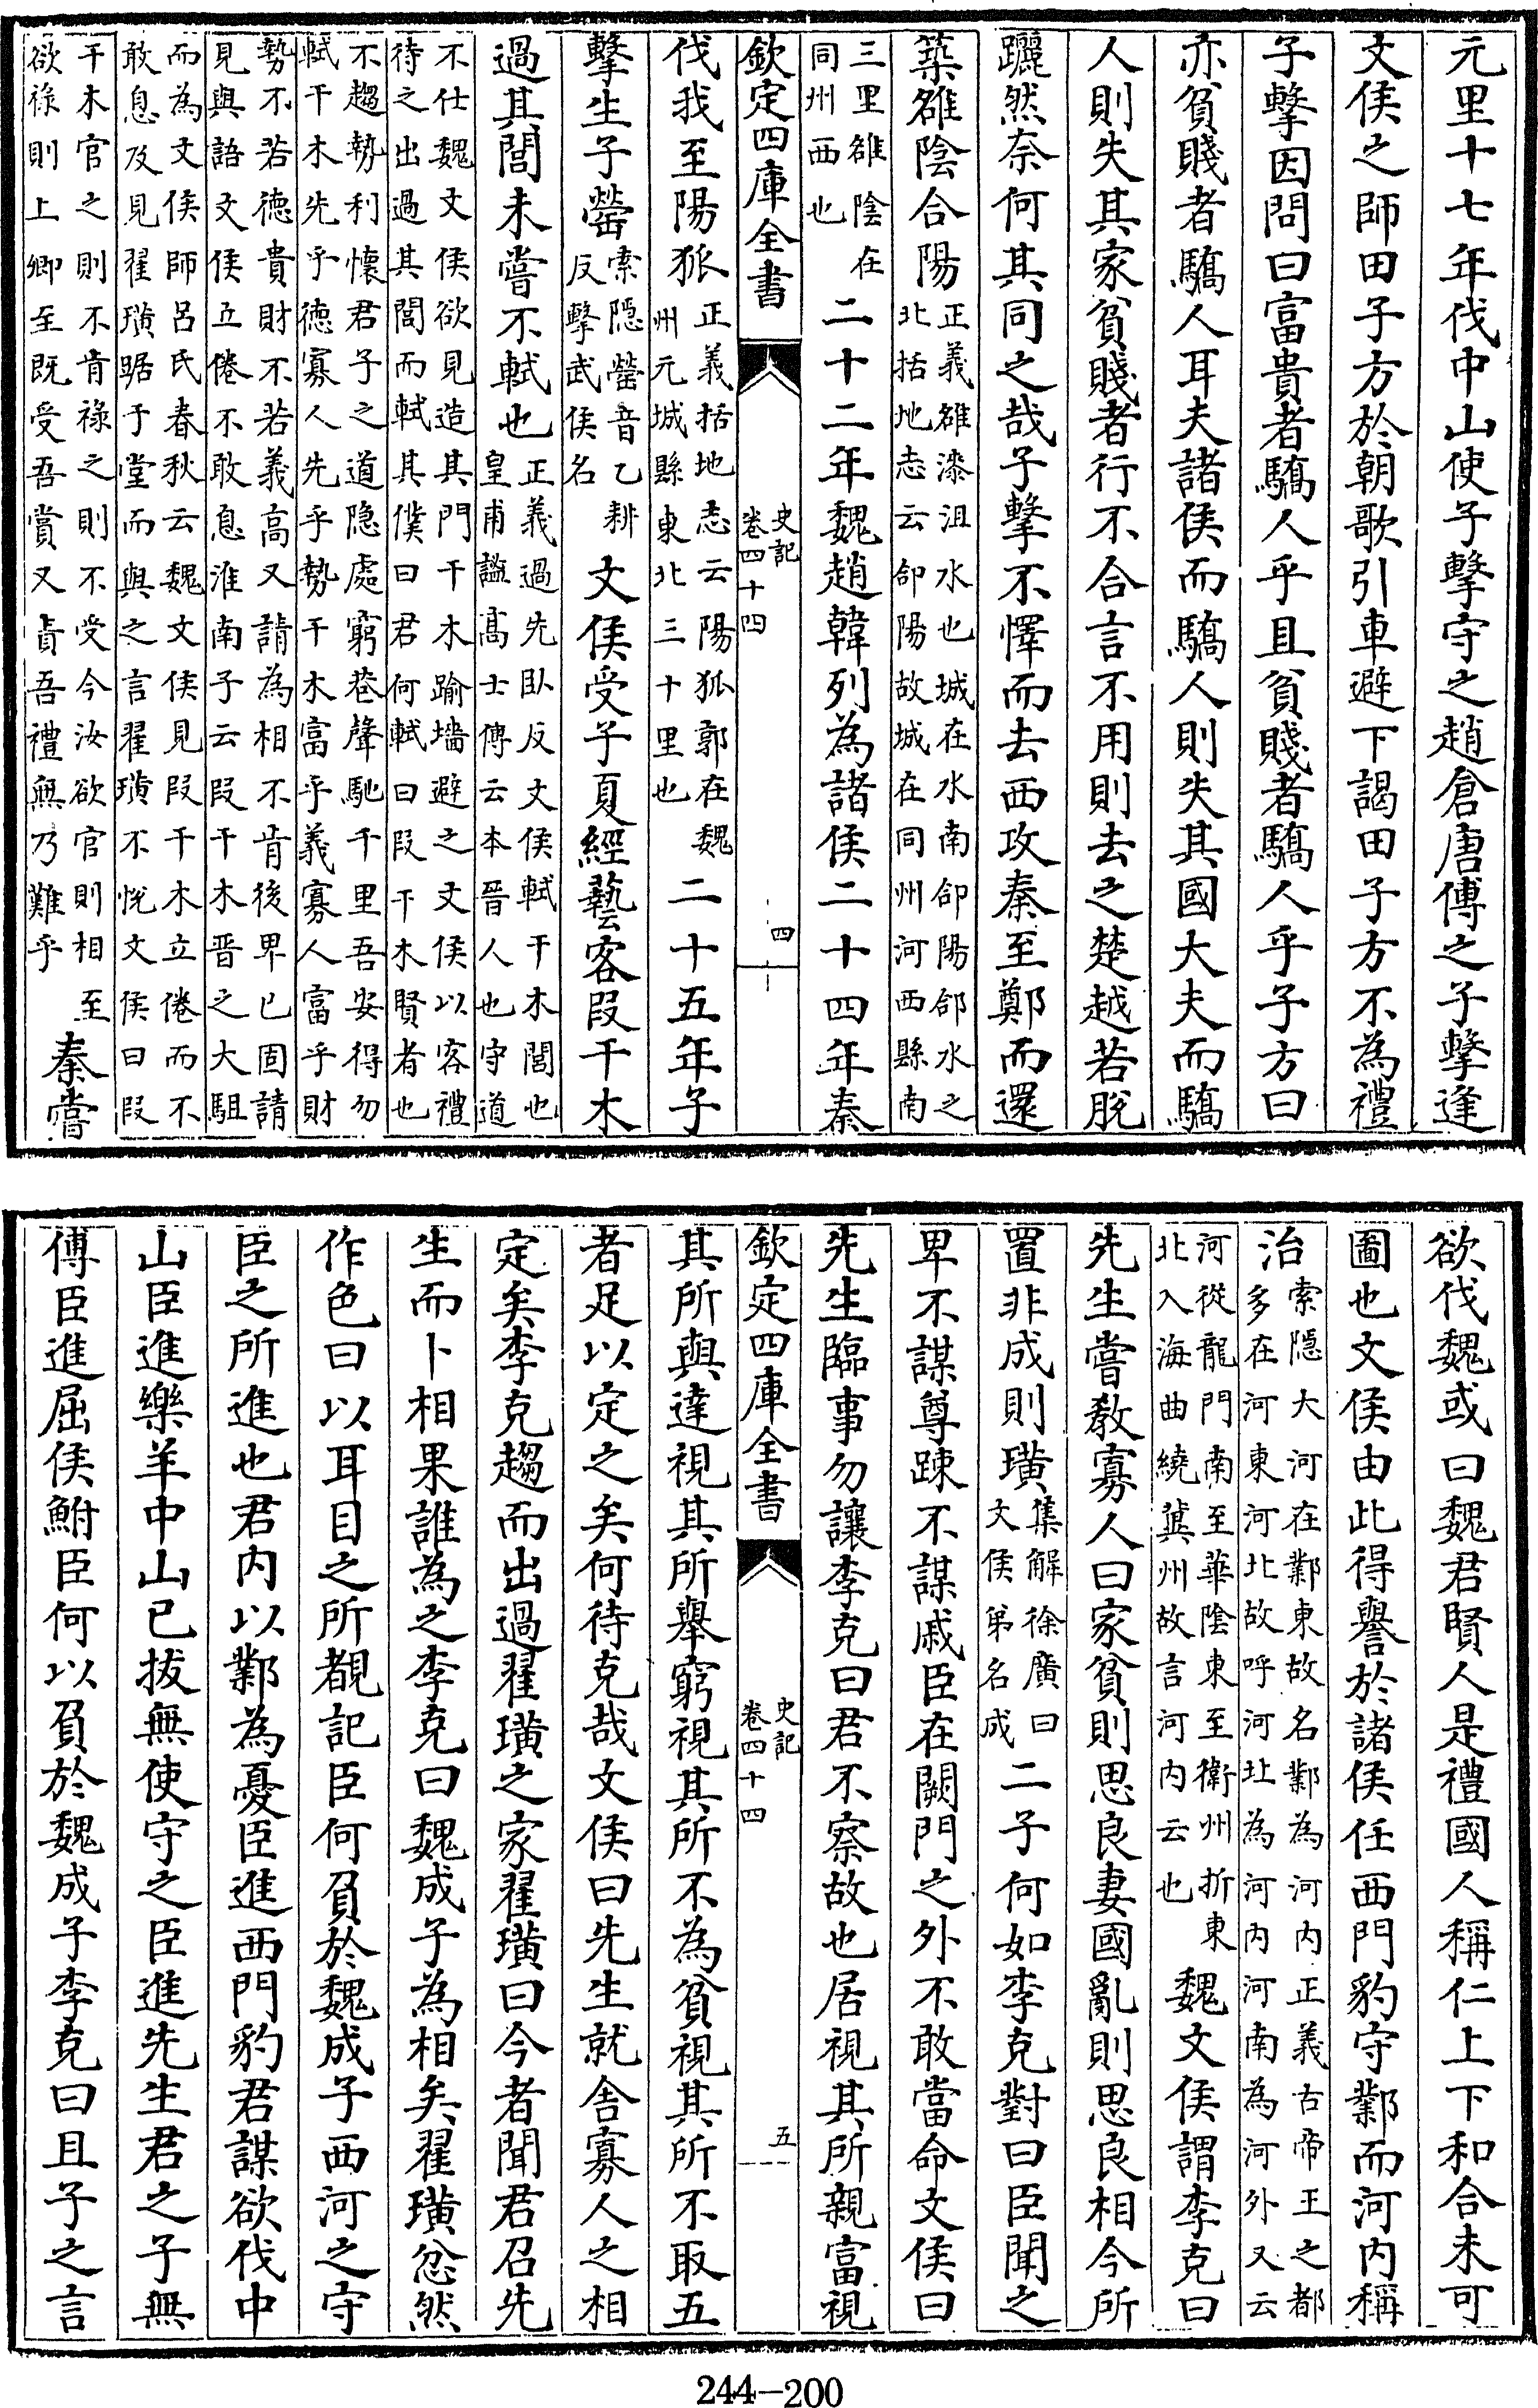 元里十七年伐中山使子擊守之趙倉唐傅之子擊逢
文侯之師田子方於朝歌引車避下謁田子方不為禮
子擊因問曰富貴者驕人乎且貧賤者驕人乎子方曰
亦貧賤者驕人耳夫諸侯而驕人則失其國大夫而驕
人則失其家貧賤者行不合言不用則去之楚越若脫
躧然奈何其同之哉子擊不懌而去西攻秦至鄭而還
築雒陰合陽
正義雒漆沮水也城在水南郃陽郃水之
北括地志云郃陽故城在同州河西縣南
三里雒陰在
同州西也
二十二年魏趙韓列為諸侯二十四年秦
欽定四庫全書
史記
卷四十四
四
伐我至陽狐
正義括地志云陽狐郭在魏
州元城縣東北三十里也
二十五年子
擊生子罃
索隱罃音乙耕
反擊武侯名
文侯受子夏經藝客段干木
過其閭未嘗不軾也
正義過先臥反文侯軾干木閭也
皇甫謐高士傳云木晉人也守道
不仕魏文侯欲見造其門干木踰墻避之文侯以客禮
待之出過其閭而軾其僕曰君何軾曰段干木賢者也
不趨勢利懷君子之道隱處窮巷聲馳千里吾安得勿
軾干木先乎德寡人先乎勢干木富乎義寡人富乎財
勢不若德貴財不若義高又請為相不肯後卑已固請
見與語文侯立倦不敢息淮南子云段干木晉之大駔
而為文侯師呂氏春秋云魏文侯見段干木立倦而不
敢息及見翟璜踞于堂而與之言翟璜不悅文侯曰段
干木官之則不肯祿之則不受今汝欲官則相至
欲祿則上卿至既受吾賞又責吾禮無乃難乎
秦嘗
欲伐魏或曰魏君賢人是禮國人稱仁上下和合未可
圖也文侯由此得譽於諸侯任西門豹守鄴而河內稱
治
索隱大河在鄴東故名鄴為河內正義古帝王之都
多在河東河北故呼河北為河內河南為河外又云
河從龍門南至華陰東至衛州折東
北入海曲繞冀州故言河內云也
魏文侯謂李克曰
先生嘗教寡人曰家貧則思良妻國亂則思良相今所
置非成則璜
集解徐廣曰
文侯弟名成
二子何如李克對曰臣聞之
卑不謀尊踈不謀戚臣在闕門之外不敢當命文侯曰
先生臨事勿讓李克曰君不察故也居視其所親富視
欽定四庫全書
史記
卷四十四
五
其所與達視其所舉窮視其所不為貧視其所不取五
者足以定之矣何待克哉文侯曰先生就舍寡人之相
定矣李克趨而出過翟璜之家翟璜曰今者聞君召先
生而卜相果誰為之李克曰魏成子為相矣翟璜忿然
作色曰以耳目之所覩記臣何負於魏成子西河之守
臣之所進也君內以鄴為憂臣進西門豹君謀欲伐中
山臣進樂羊中山已拔無使守之臣進先生君之子無
傅臣進屈侯鮒臣何以負於魏成子李克曰且子之言
244-200